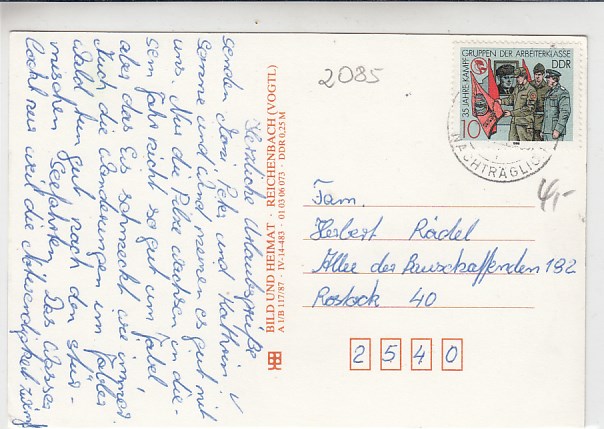 Herzliche Urlaubsgrüße
senden Doris, Peter und Kathrin.
Sonne und Wind meinen es gut mit
uns. Nur die Pilze wachsen in die-
sem Jahr nicht so gut um Jabel
aber das Eis schmeckt wie immer.
Auch die Wanderungen im Jabler
Wald tun gut nach den stür-
mischen Seefahrten. Das Wasser
lockt nur weil die
BILD UND HEIMAT · REICHENBACH (VOGTL)
A 1/B 117/87 · IV-14-483 · 01 03 06 073 · DDR 0,25 M
2085
35 JAHRE KAMPF-
GRUPPEN DER ARBEITERKLASSE
DDR
10
NACHTRÄGLICH
4,-
Fam.
Herbert Rädel
Allee der Bauschaffenden 132
Rostock 40
2540